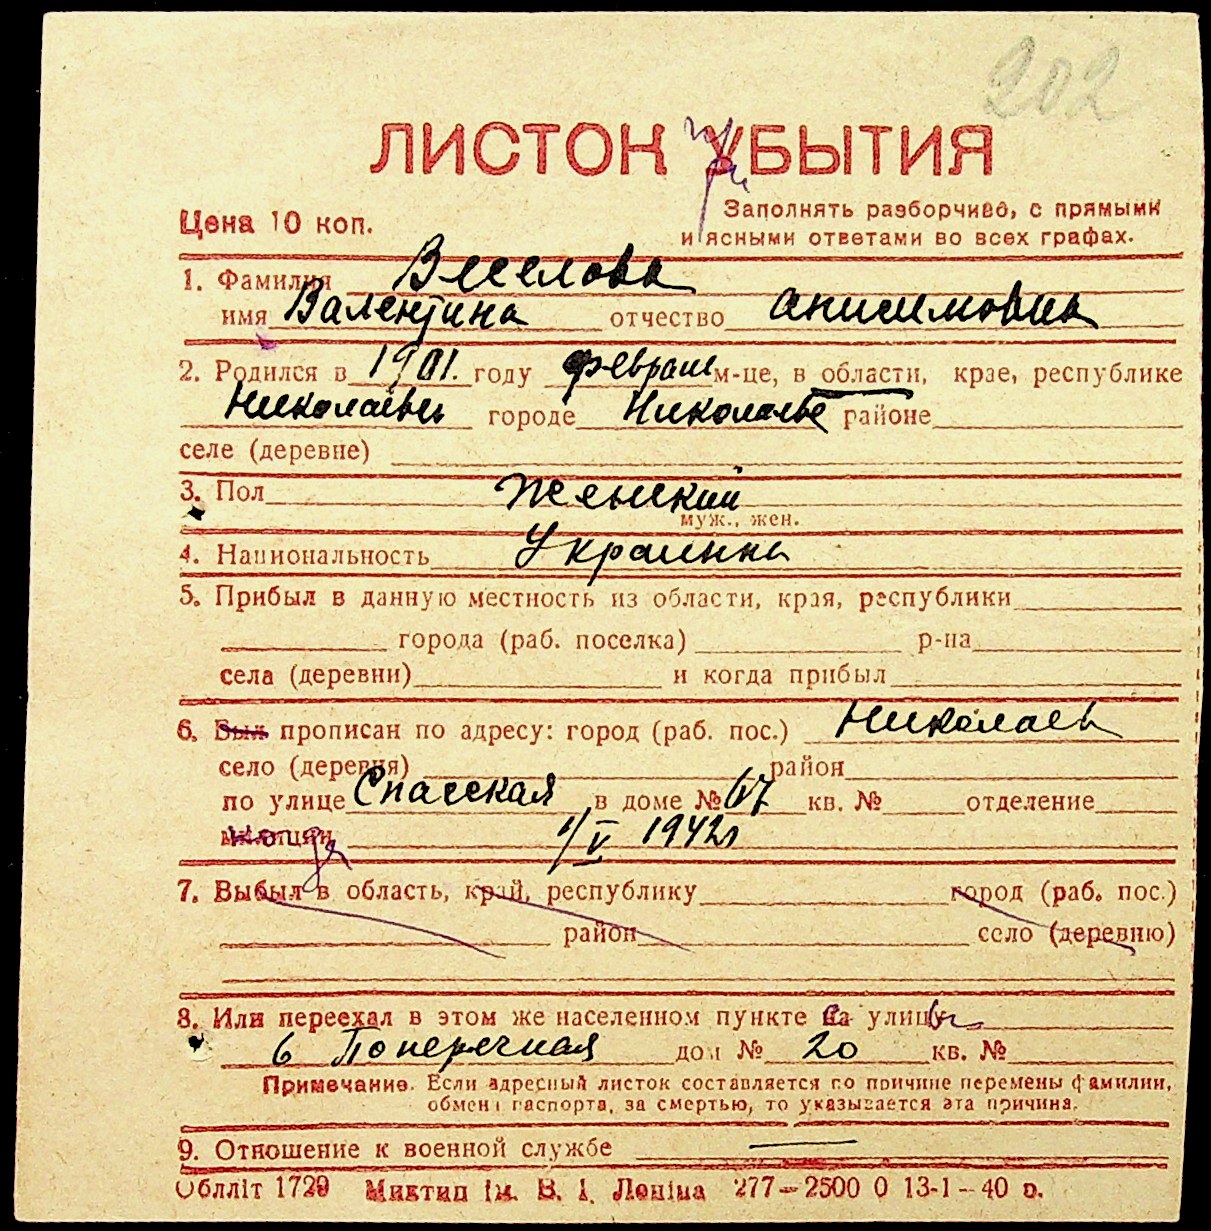 202
ЛИСТОК при УБЫТИЯ
Цена 10 коп.
Заполнять разборчиво, с прямыми
и ясными ответами во всех графах.
1. Фамилия Веселова
имя Валентина отчество Анисимовна
2. Родился в 1901. году феврале м-це, в области, крае, республике
Николаевск городе Николаеве районе
селе (деревне)
3. Пол Женский
муж., жен.
4. Национальность Украинка
5. Прибыл в данную местность из области, края, республики
города (раб. поселка) р-на
села (деревни) и когда прибыл
6. Был прописан по адресу: город (раб. пос.) Николаев
село (деревня) район
по улице Спасская в доме № 67 кв. № отделение
милиции когда 1/V 1942 г
7. Выбыл в область, край, республику город (раб. пос.)
район село (деревню)
8. Или переехал в этом же населенном пункте с улицы
6 Поперечная дом № 20 кв. №
Примечание. Если адресный листок составляется по причине перемены фамилии,
обмена паспорта, за смертью, то указывается эта причина.
9. Отношение к военной службе —
Облліт 1729 Миктип ім. В. І. Леніна 277—2500 0 13-1-40 р.